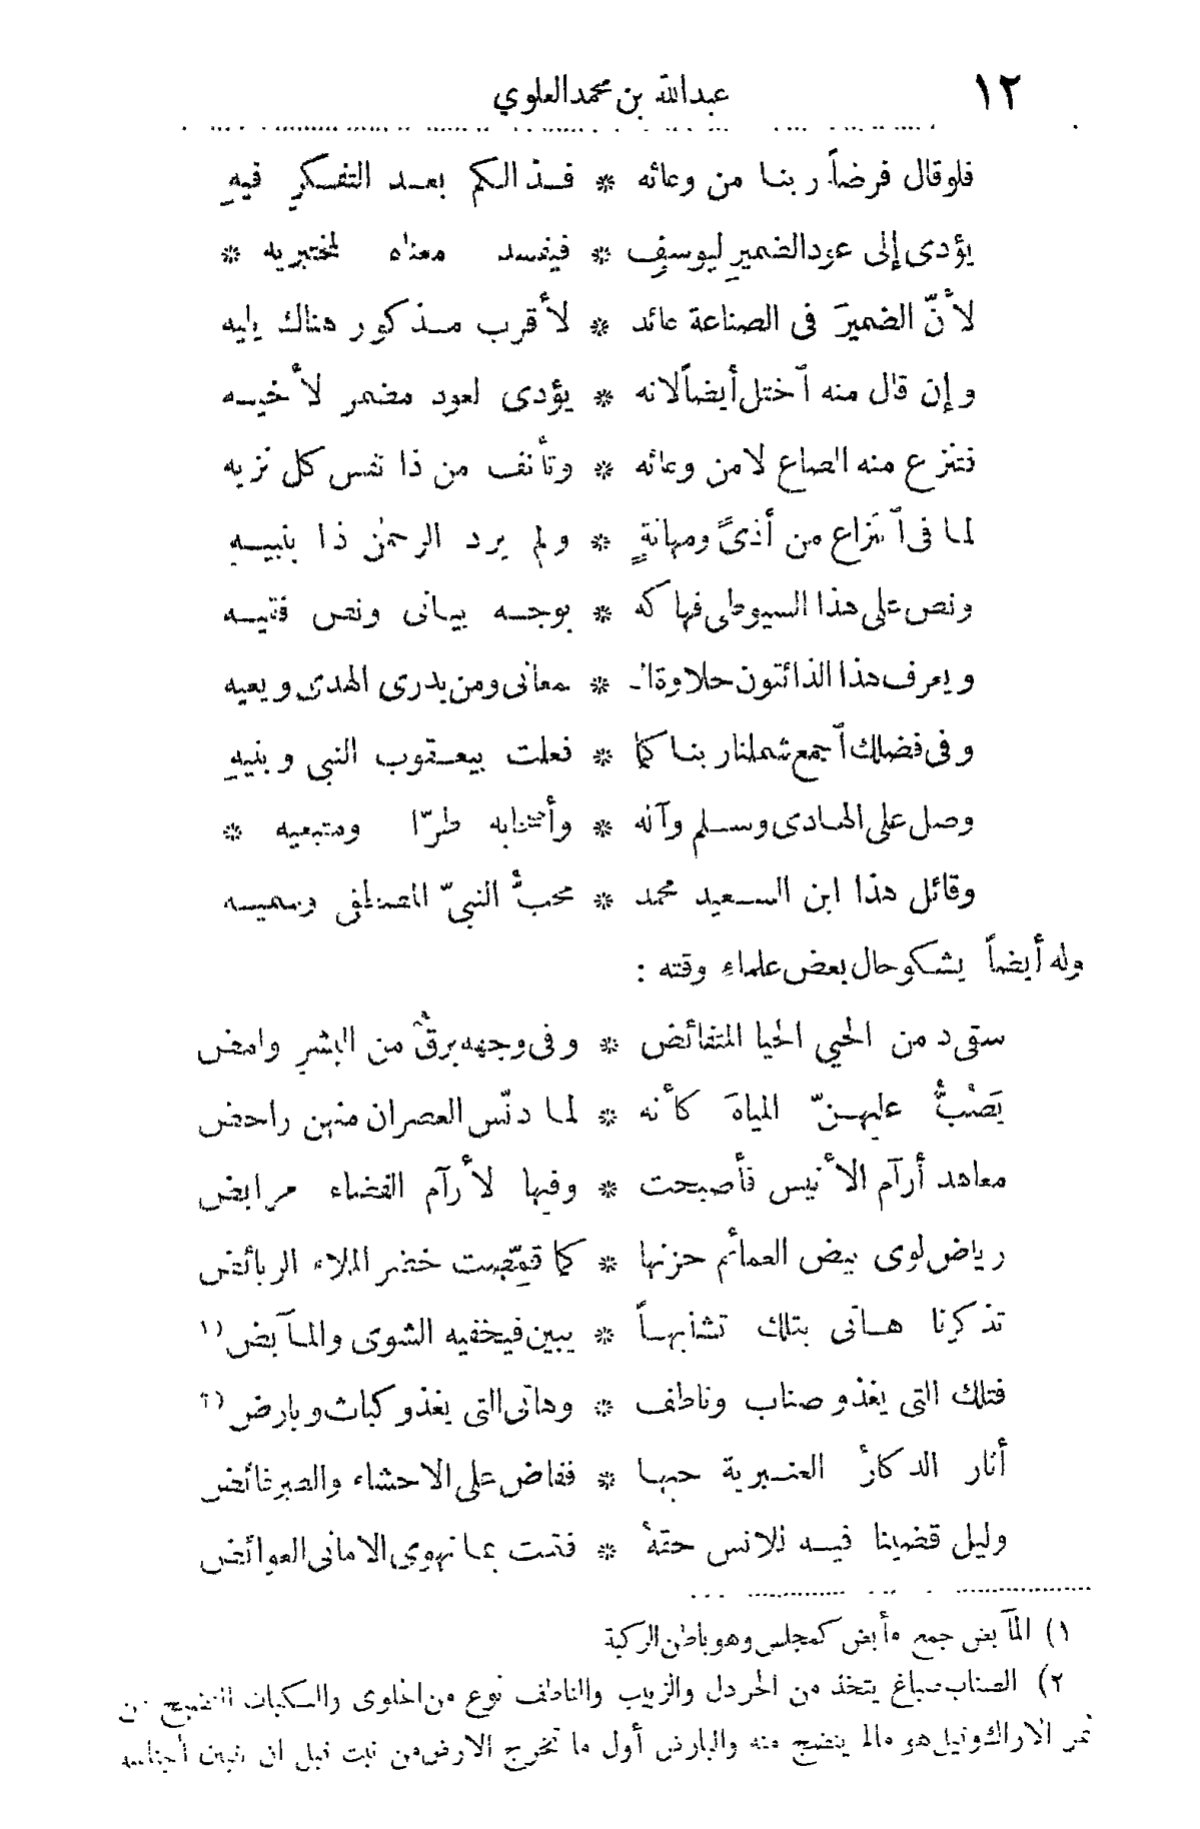 ١٢ عبدالله بن محمد العلوي
فلو قال فرضاً ربنا من وعائه * فذالكم بعد التفكرِ فيهِ
يؤدى إلى عود الضميرِ ليوسفٍ * فيفسد معناه لمختبريه *
لأنّ الضميرَ فى الصناعة عائد * لأقرب مذكور هناك يليه
وإن قال منه ٱختل أيضاً لانه * يؤدى لعود مضمر لأخيه
فتنزع منه الصاع لا من وعائه * وتأنف من ذا نفس كل نزيه
لما فى ٱنتزاع من أذىً ومهانةٍ * ولم يرد الرحمن ذا بنبيه
ونص على هذا السيوطى فهاكه * بوجه بيانى ونص فقيه
ويعرف هذا الذائقون حلاوة الـ * ـمعانى ومن يدرى الهدى ويعيه
وفى فضلك ٱجمع شملنا ربنا كما * فعلت بيعقوب النبي وبنيهِ
وصل على الهادى وسلم وآله * وأصحابه طرّا ومتبعيه *
وقائل هذا ابن السعيد محمد * محبُّ النبيّ المصطفى وسميه
وله أيضاً يشكو حال بعض علماءِ وقته :
سقى د من الحي الحيا المتفائض * وفى وجهه برقٌ من البشرِ وامض
يَصُبُّ عليهنّ المياهَ كأنه * لما دنّس العصران منهن راحض
معاهد أرآم الأنيس فأصبحت * وفيها لأرآم الفضاء مرابض
رياض لوى بيض العمائم حزنها * كما قمّصت خضر الملاء الربائض
تذكرنا هاتى بتلك تشابهاً * يبين فيخفيه الشوى والمآبض (١
فتلك التى يغذو صناب وناطف * وهاتى التى يغذو كباث وبارض (٢
أثار الدكارُ العنبرية حبها * ففاض على الاحشاء والصبر غائض
وليل قضينا فيه للانس حقهُ * فتمت بما نهوى الامانى العوائض
١) المآبض جمع مأبض كمجلس وهو باطن الركبة
٢) الصناب صباغ يتخذ من الخردل والزبيب والناطف نوع من الحلوى والكباث النضيج من
ثمر الاراك وقيل هو مالم ينضج منه والبارض أول ما تخرج الارض من نبت قبل ان تتبين أجناسه